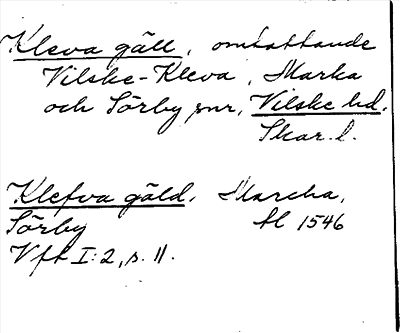 Kleva gäll, omfattande
Vilske-Kleva, Marka
och Sörby snr, Vilske hd.
Skar. l.
Klefva gäld, Marcha,
Sörby hl 1546
Vft I:2, s. 11.